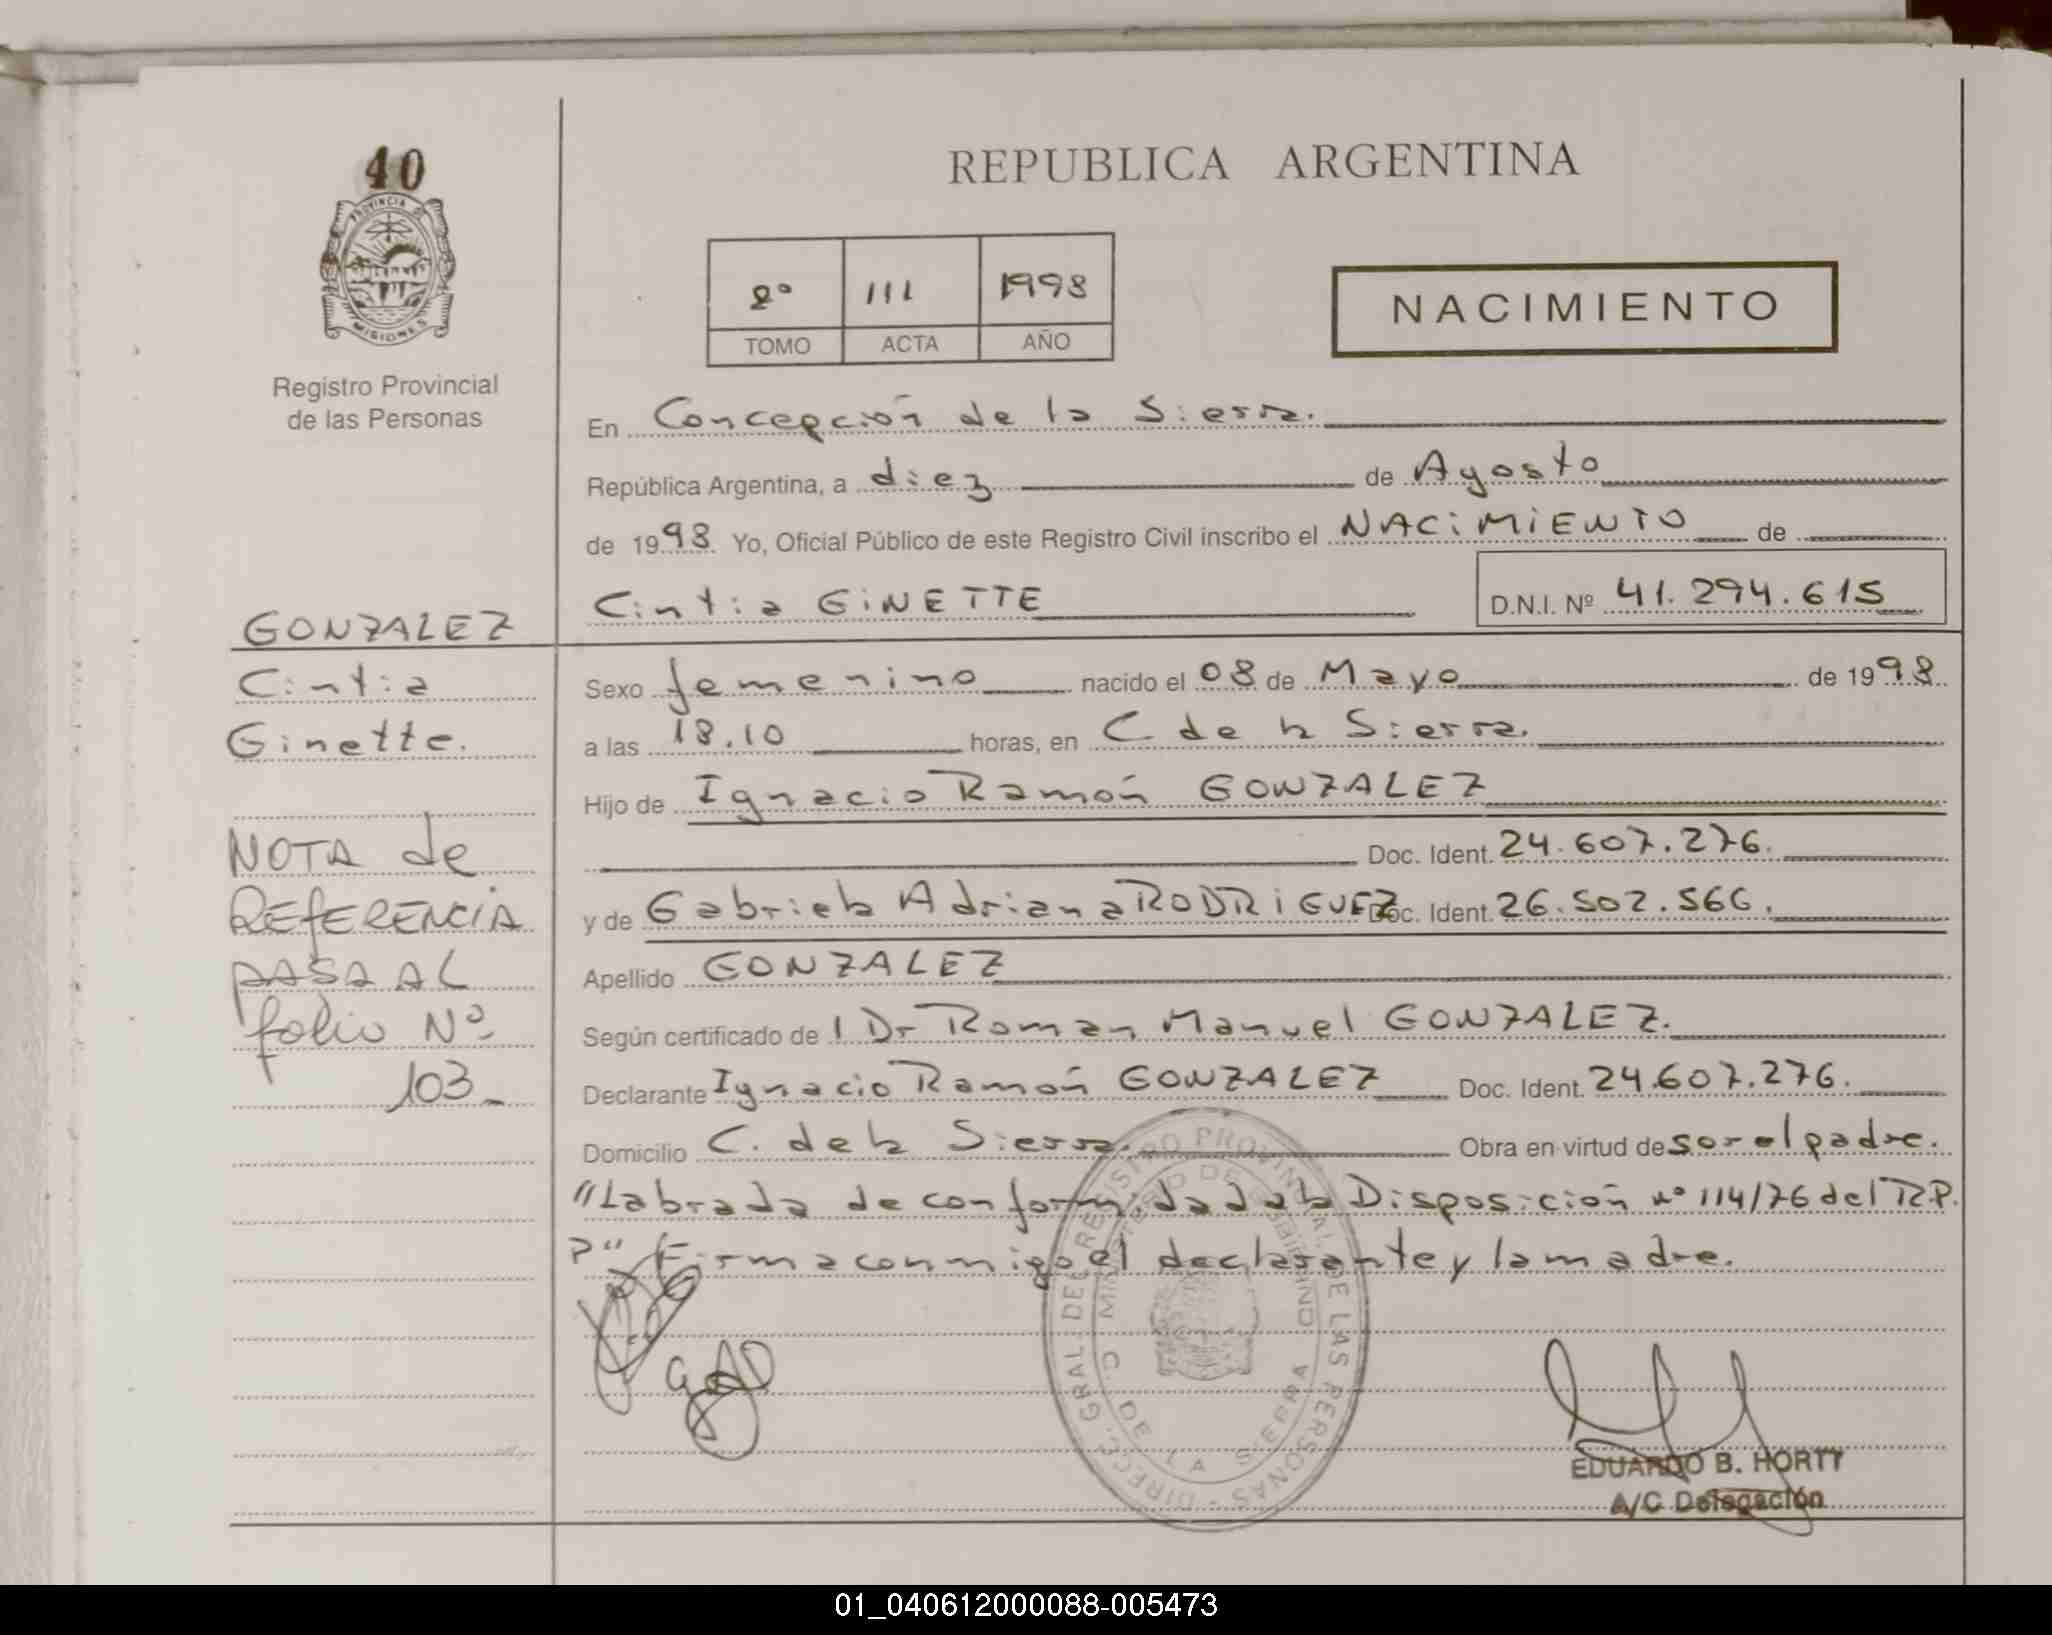 40
PROVINCIA DE
MISIONES
Registro Provincial
de las Personas
REPUBLICA ARGENTINA
2º 111 1998
TOMO ACTA AÑO
NACIMIENTO
En Concepción de la Sierra.
República Argentina, a diez de Agosto
de 1998 Yo, Oficial Público de este Registro Civil inscribo el NACIMIENTO de
Cintia GINETTE D.N.I. Nº 41.294.615
GONZALEZ
Cintia
Ginette.
NOTA de
REFERENCIA
PASA AL
folio Nº
103
Sexo femenino nacido el 08 de Mayo de 1998
a las 18.10 horas, en C de la Sierra.
Hijo de Ignacio Ramón GONZALEZ
Doc. Ident. 24.607.276.
y de Gabriela Adriana RODRIGUEZ Doc. Ident. 26.502.566.
Apellido GONZALEZ
Según certificado de l Dr Roman Manuel GONZALEZ.
Declarante Ignacio Ramón GONZALEZ Doc. Ident. 24.607.276.
Domicilio C. de la Sierra. Obra en virtud de ser el padre.
"Labrada de conformidad a la Disposición nº 114/76 del R.P.
P" Firma conmigo el declarante y la madre.
DIREC. GRAL. DEL REGISTRO PROVINCIAL DE LAS PERSONAS
MINISTERIO DE GOBIERNO
C. DE LA SIERRA
EDUARDO B. HORTT
A/C Delegación
01_040612000088-005473